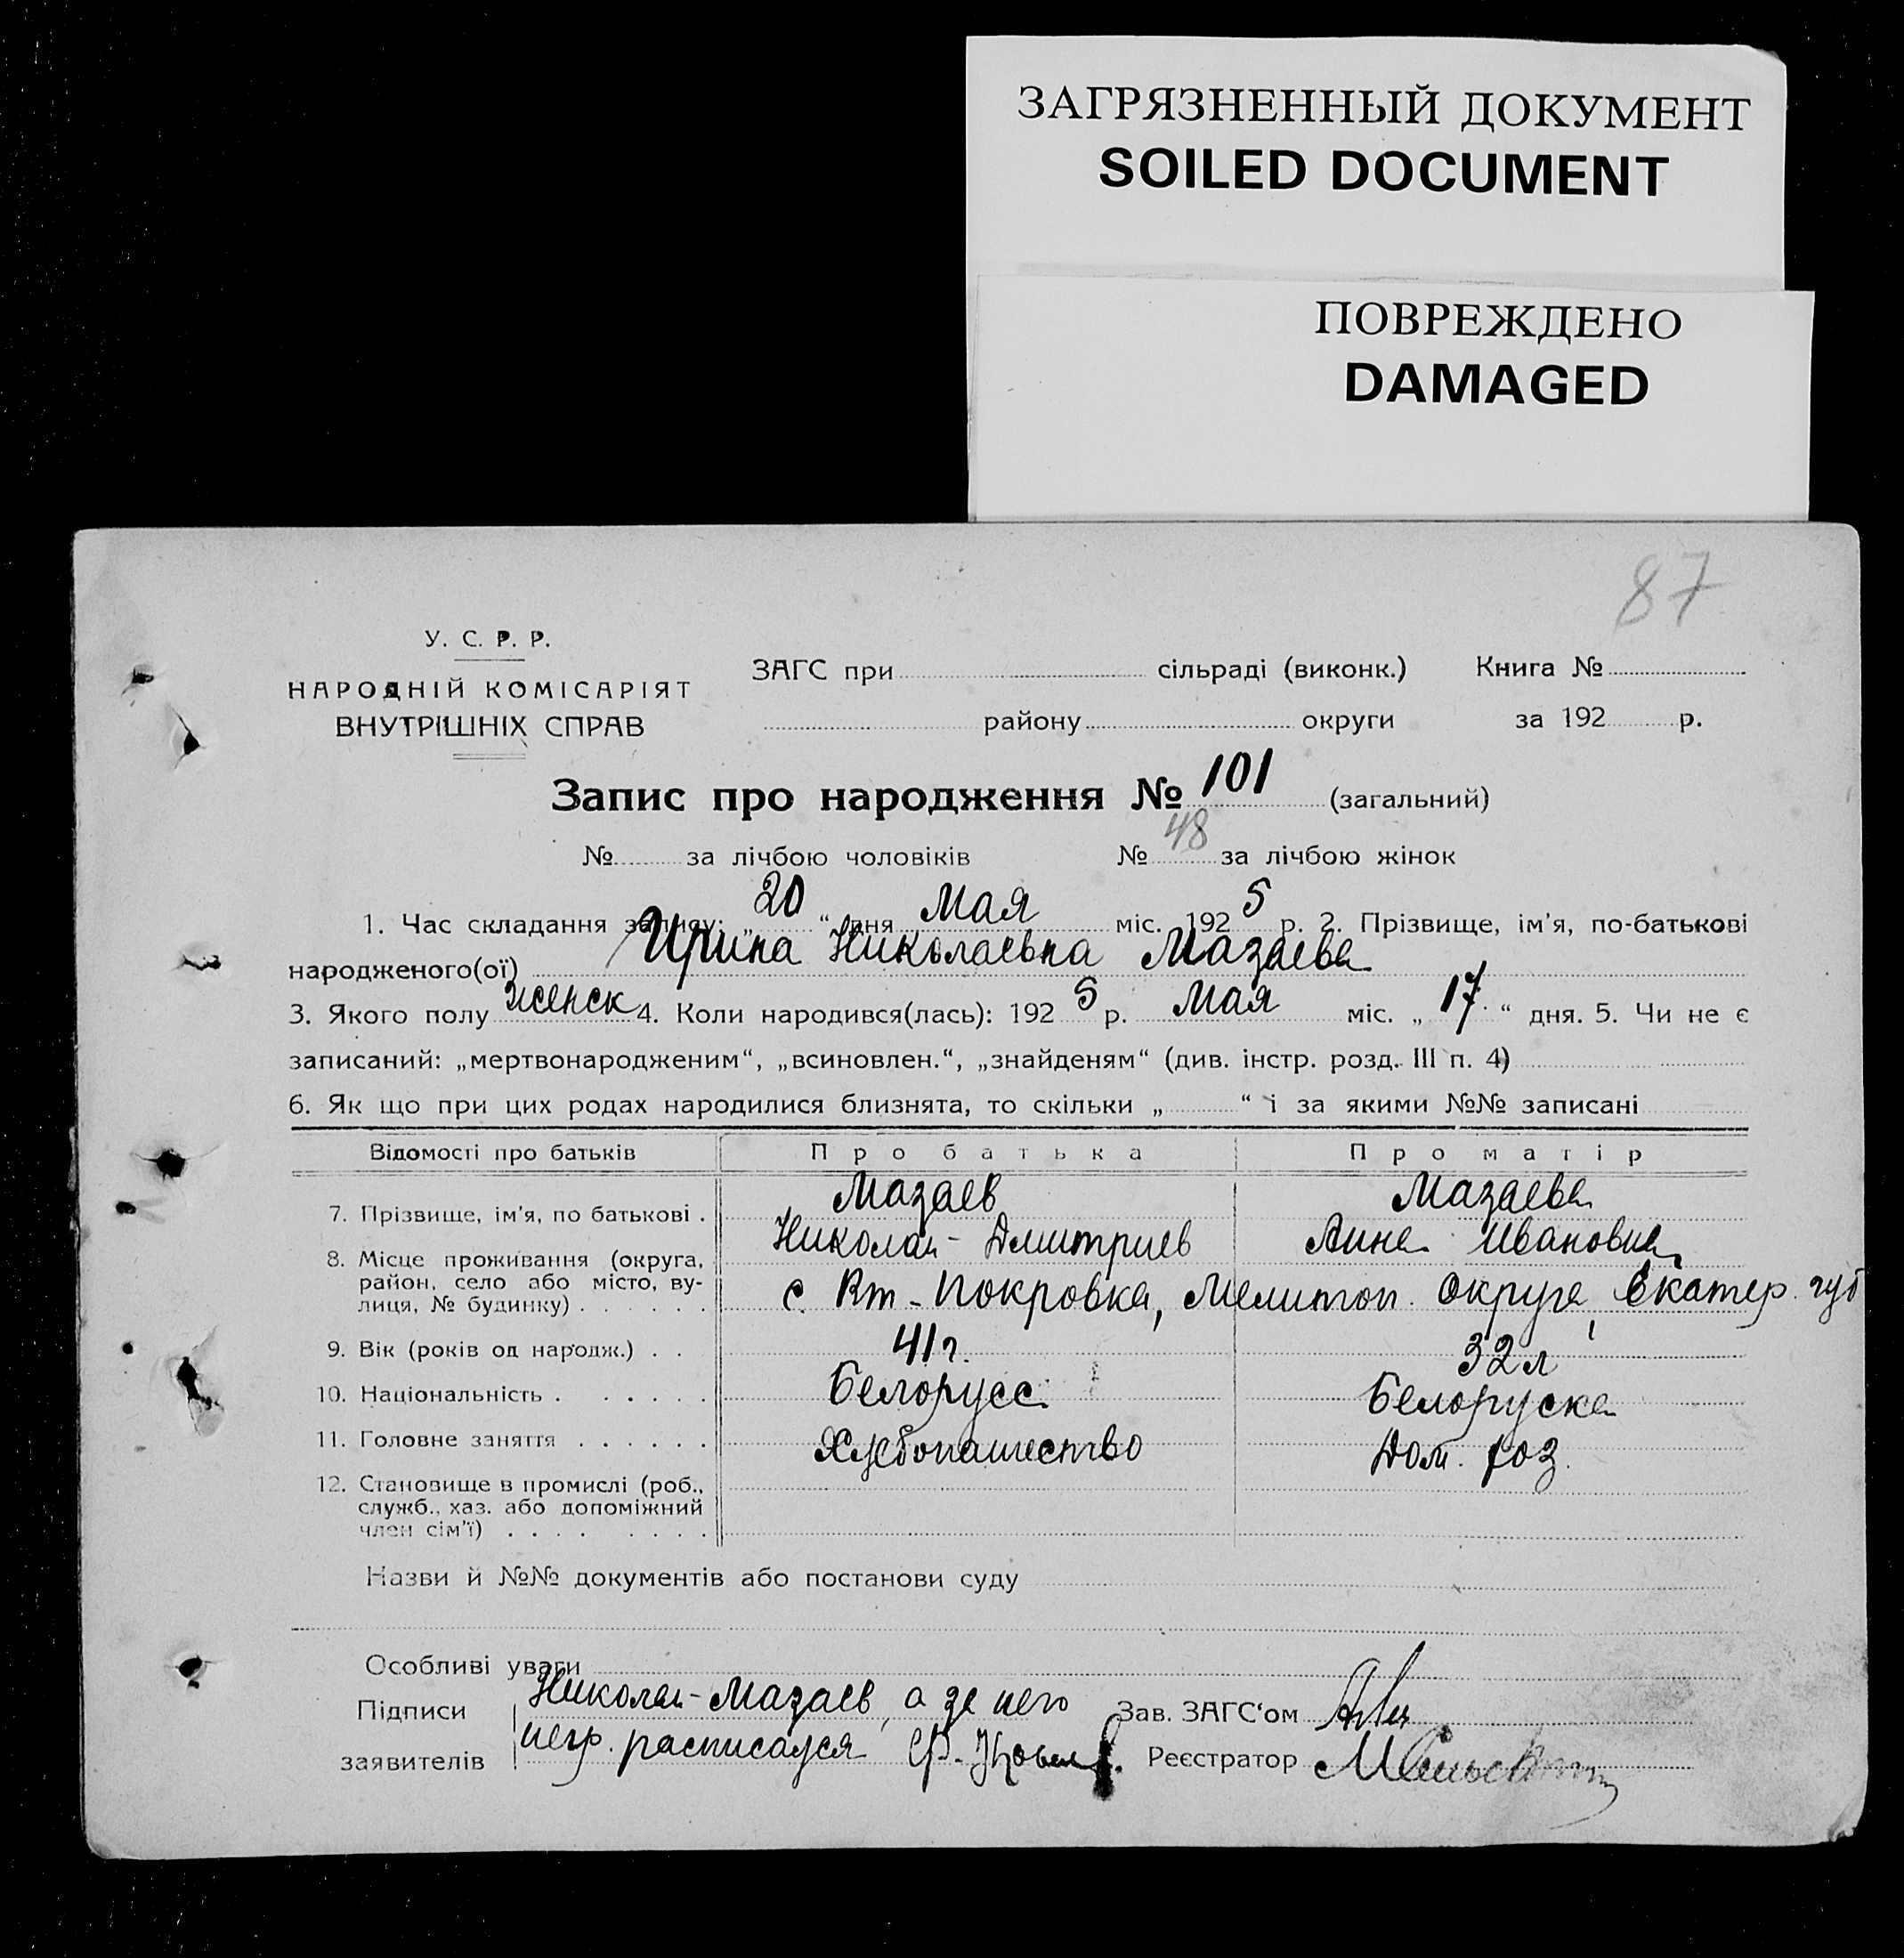 ЗАГРЯЗНЕННЫЙ ДОКУМЕНТ
SOILED DOCUMENT
ПОВРЕЖДЕНО
DAMAGED
87
У. С. Р. Р.
НАРОДНІЙ КОМІСАРІЯТ
ВНУТРІШНІХ СПРАВ
ЗАГС при сільраді (виконк.) Книга №
району округи за 192 р.
Запис про народження № 101 (загальний)
№ за лічбою чоловіків № 48 за лічбою жінок
1. Час складання запису: „ 20 “ дня Мая міс. 192 5 р. 2. Прізвище, ім'я, по-батькові
народженого(ої) Ирина Николаевна Мазаева
3. Якого полу женск 4. Коли народився(лась): 192 5 р. Мая міс. „ 17 “ дня. 5. Чи не є
записаний: „мертвонародженим“, „всиновлен.“, „знайденям“ (див. інстр. розд. III п. 4)
6. Як що при цих родах народилися близнята, то скільки „ “ і за якими №№ записані
Відомості про батьків Про батька Про матір
7. Прізвище, ім'я, по батькові . Мазаев Мазаева
Николай - Дмитриев Анна Ивановна
8. Місце проживання (округа,
район, село або місто, ву-
лиця, № будинку) . . . . . . с. Кт - Покровка, Мелитоп. округа, Екатер. губ
9. Вік (років од народж.) . . 41 г. 32 л
10. Національність . . . . . . Белорусс Белоруска
11. Головне заняття . . . . . . Хлебопашество Дом. хоз.
12. Становище в промислі (роб.,
служб., хаз. або допоміжний
член сім'ї) . . . . . . . .
Назви й №№ документів або постанови суду
Особливі уваги
Підписи Николай - Мазаев, а за него Зав. ЗАГС'ом
заявителів негр. расписался Реєстратор